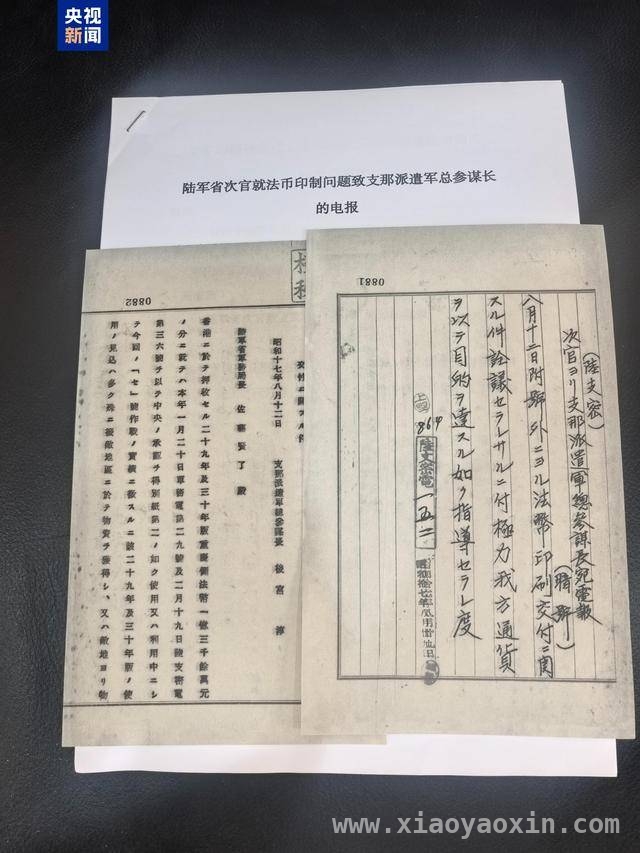 央视
新闻
陆军省次官就法币印制问题致支那派遣军总参谋长
的电报
0881
(陸支密)
次官ヨリ支那派遣軍總參謀長宛電報
(暗號)
八月十二日附號外ニヨル法幣印刷交付ニ関
スル件詮議セラレサルニ付極力我方通貨
ヲ以テ目的ヲ達スル如ク指導セラレ度
陸支密電一五二
0882
交付ニ關スル件
昭和十七年八月十二日
支那派遣軍總參謀長 後宮 淳
陸軍省軍務局長 佐藤賢了殿
香港ニ於テ押收セル二十九年及三十年版重慶側法幣一億三千餘萬元
ノ分ニ就テハ本年一月二十日軍務電第二九號及二月十九日陸支密電
第三六號ヲ以テ中央ノ承認ヲ得別紙第二ノ如ク使用又ハ利用中ニシ
テ今回ノ「セ」號作戰ノ實績ニ徵スルニ該二十九年及三十年版ノ使
用ノ見込ハ多ク殊ニ接敵地區ニ於テ物資ヲ獲得シ、又ハ敵地ヨリ物
www.xiaoyaoxin.com